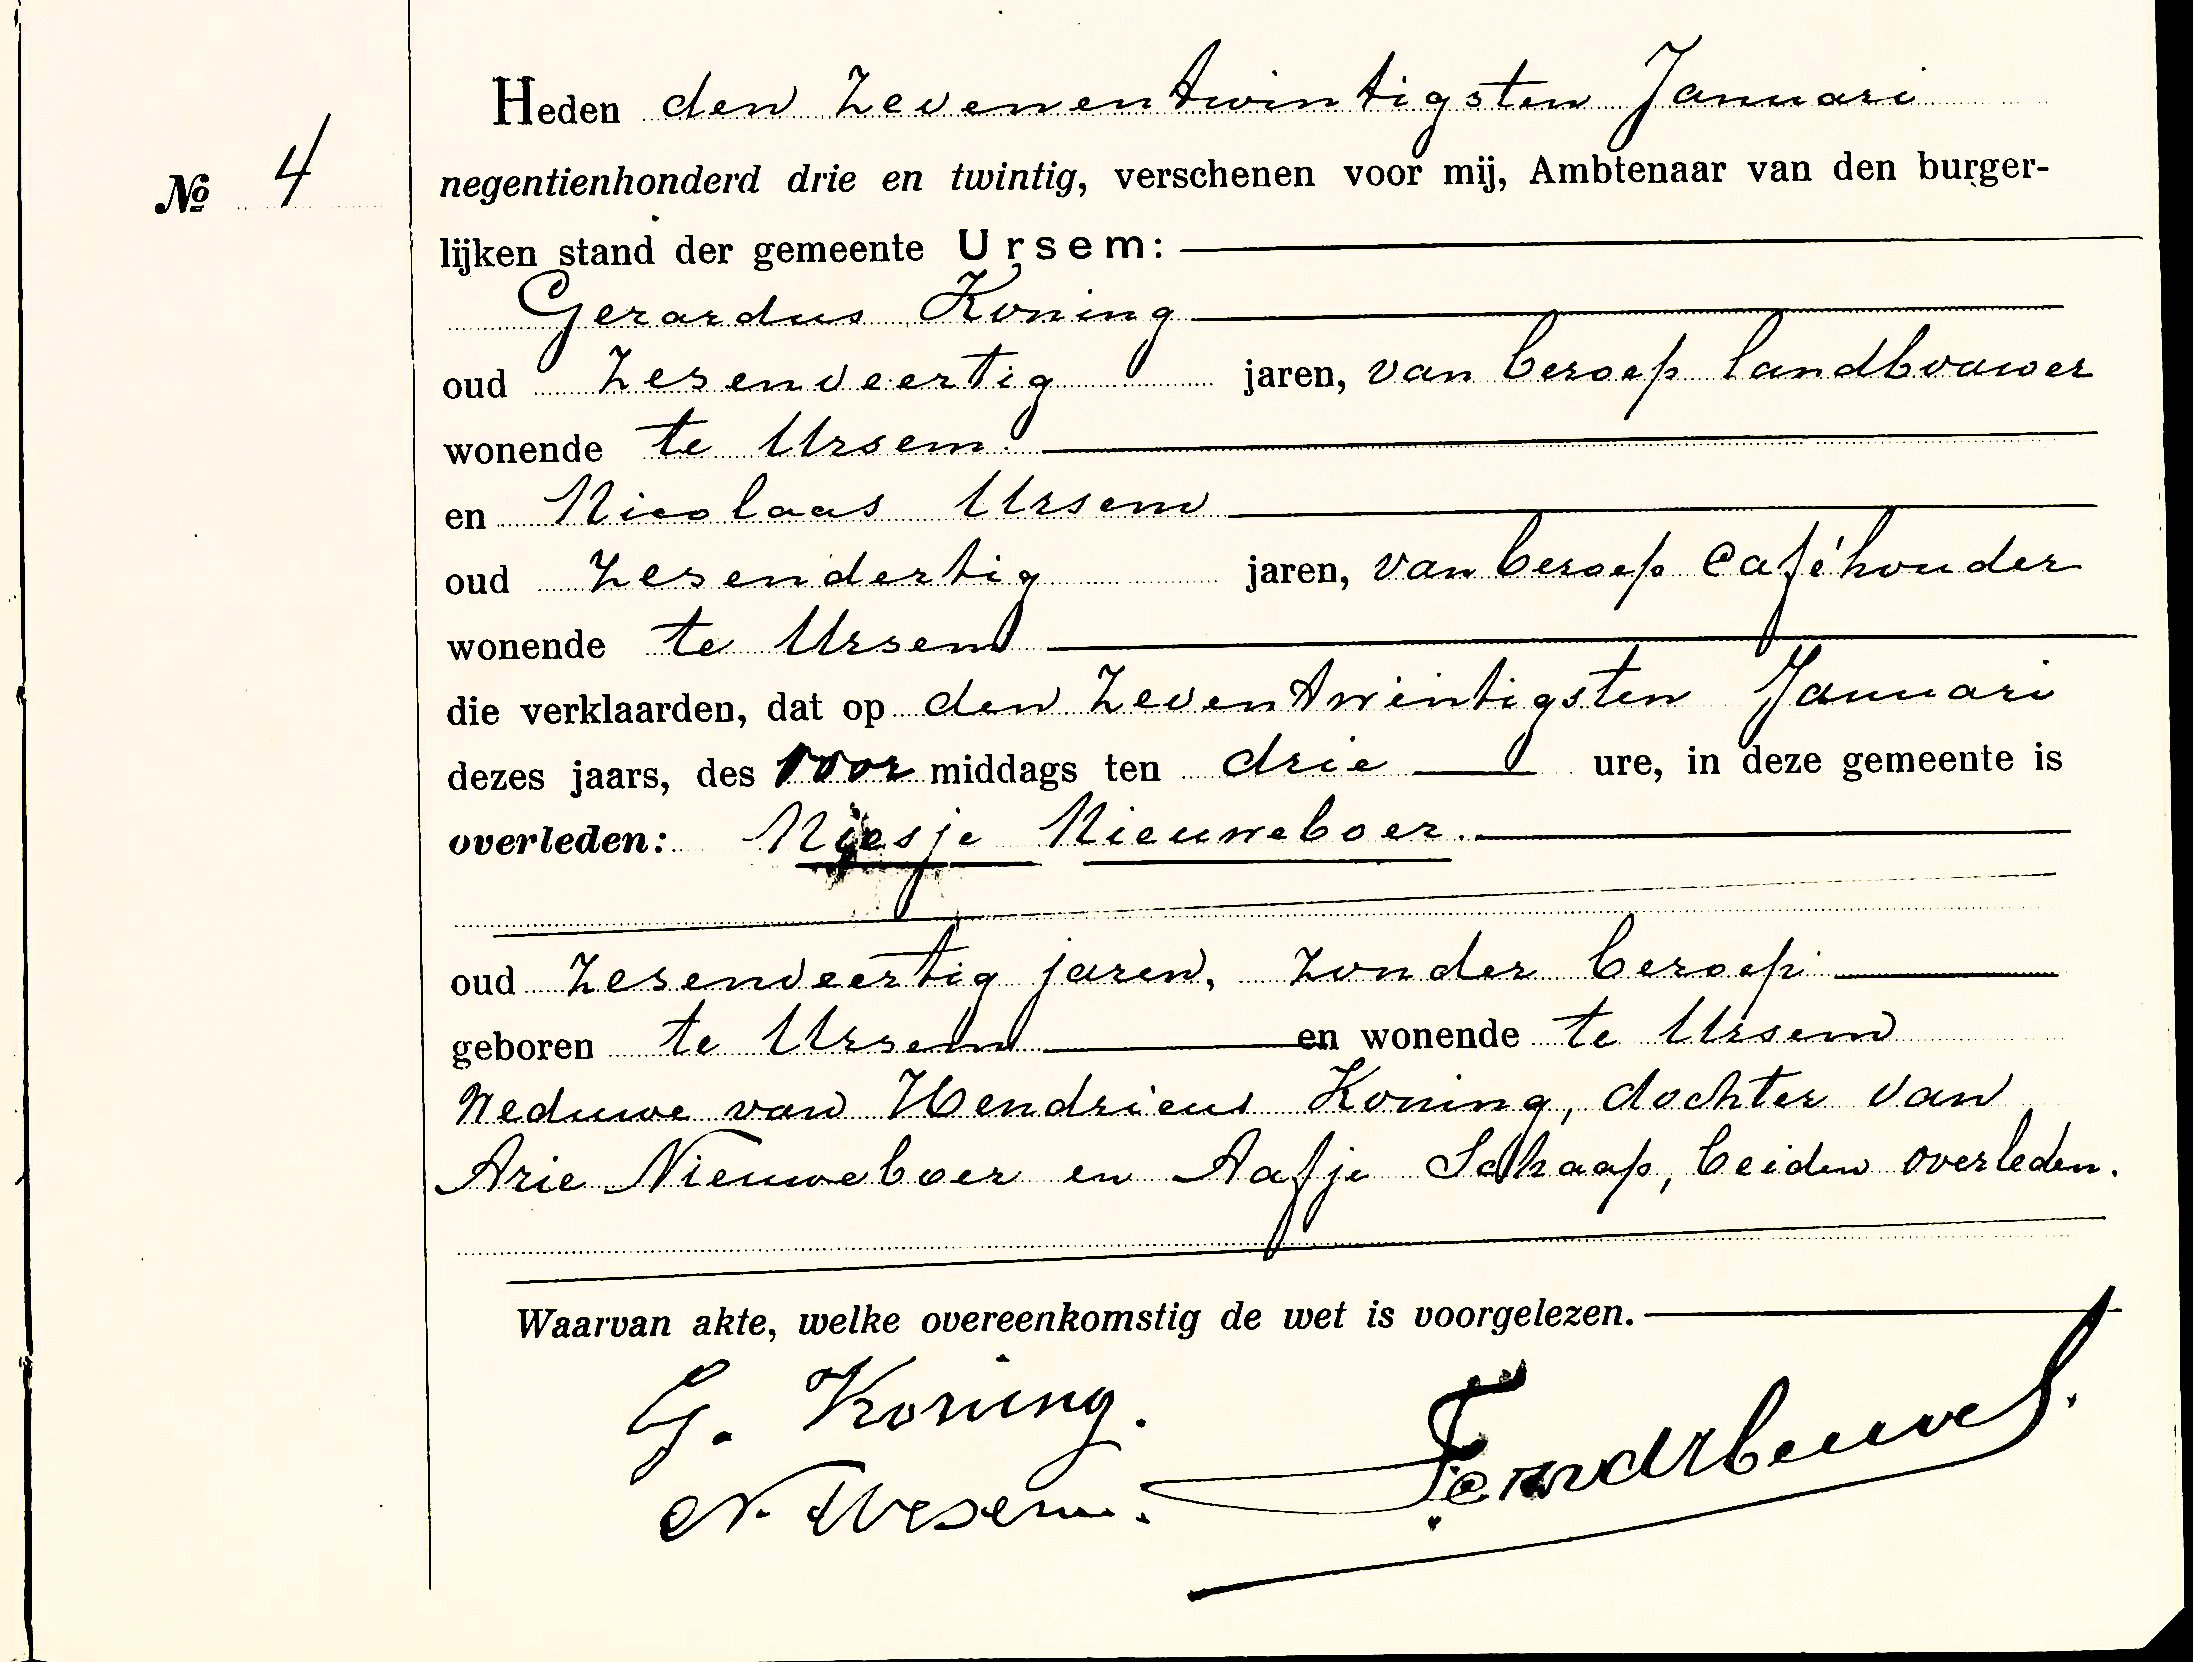 Heden den zevenentwintigsten Januari
No 4
negentienhonderd drie en twintig, verschenen voor mij, Ambtenaar van den burger-
lijken stand der gemeente Ursem:
Gerardus Koning
oud zesenveertig jaren, van beroep landbouwer
wonende te Ursem
en Nicolaas Ursem
oud zesendertig jaren, van beroep caféhouder
wonende te Ursem
die verklaarden, dat op den zeventwintigsten Januari
dezes jaars, des voor middags ten drie ure, in deze gemeente is
overleden: Niesje Nieuweboer.
oud zesenveertig jaren, zonder beroep
geboren te Ursem en wonende te Ursem
Weduwe van Hendricus Koning, dochter van
Arie Nieuweboer en Aafje Schaap, beiden overleden.
Waarvan akte, welke overeenkomstig de wet is voorgelezen.
G. Koning.
N. Ursem.